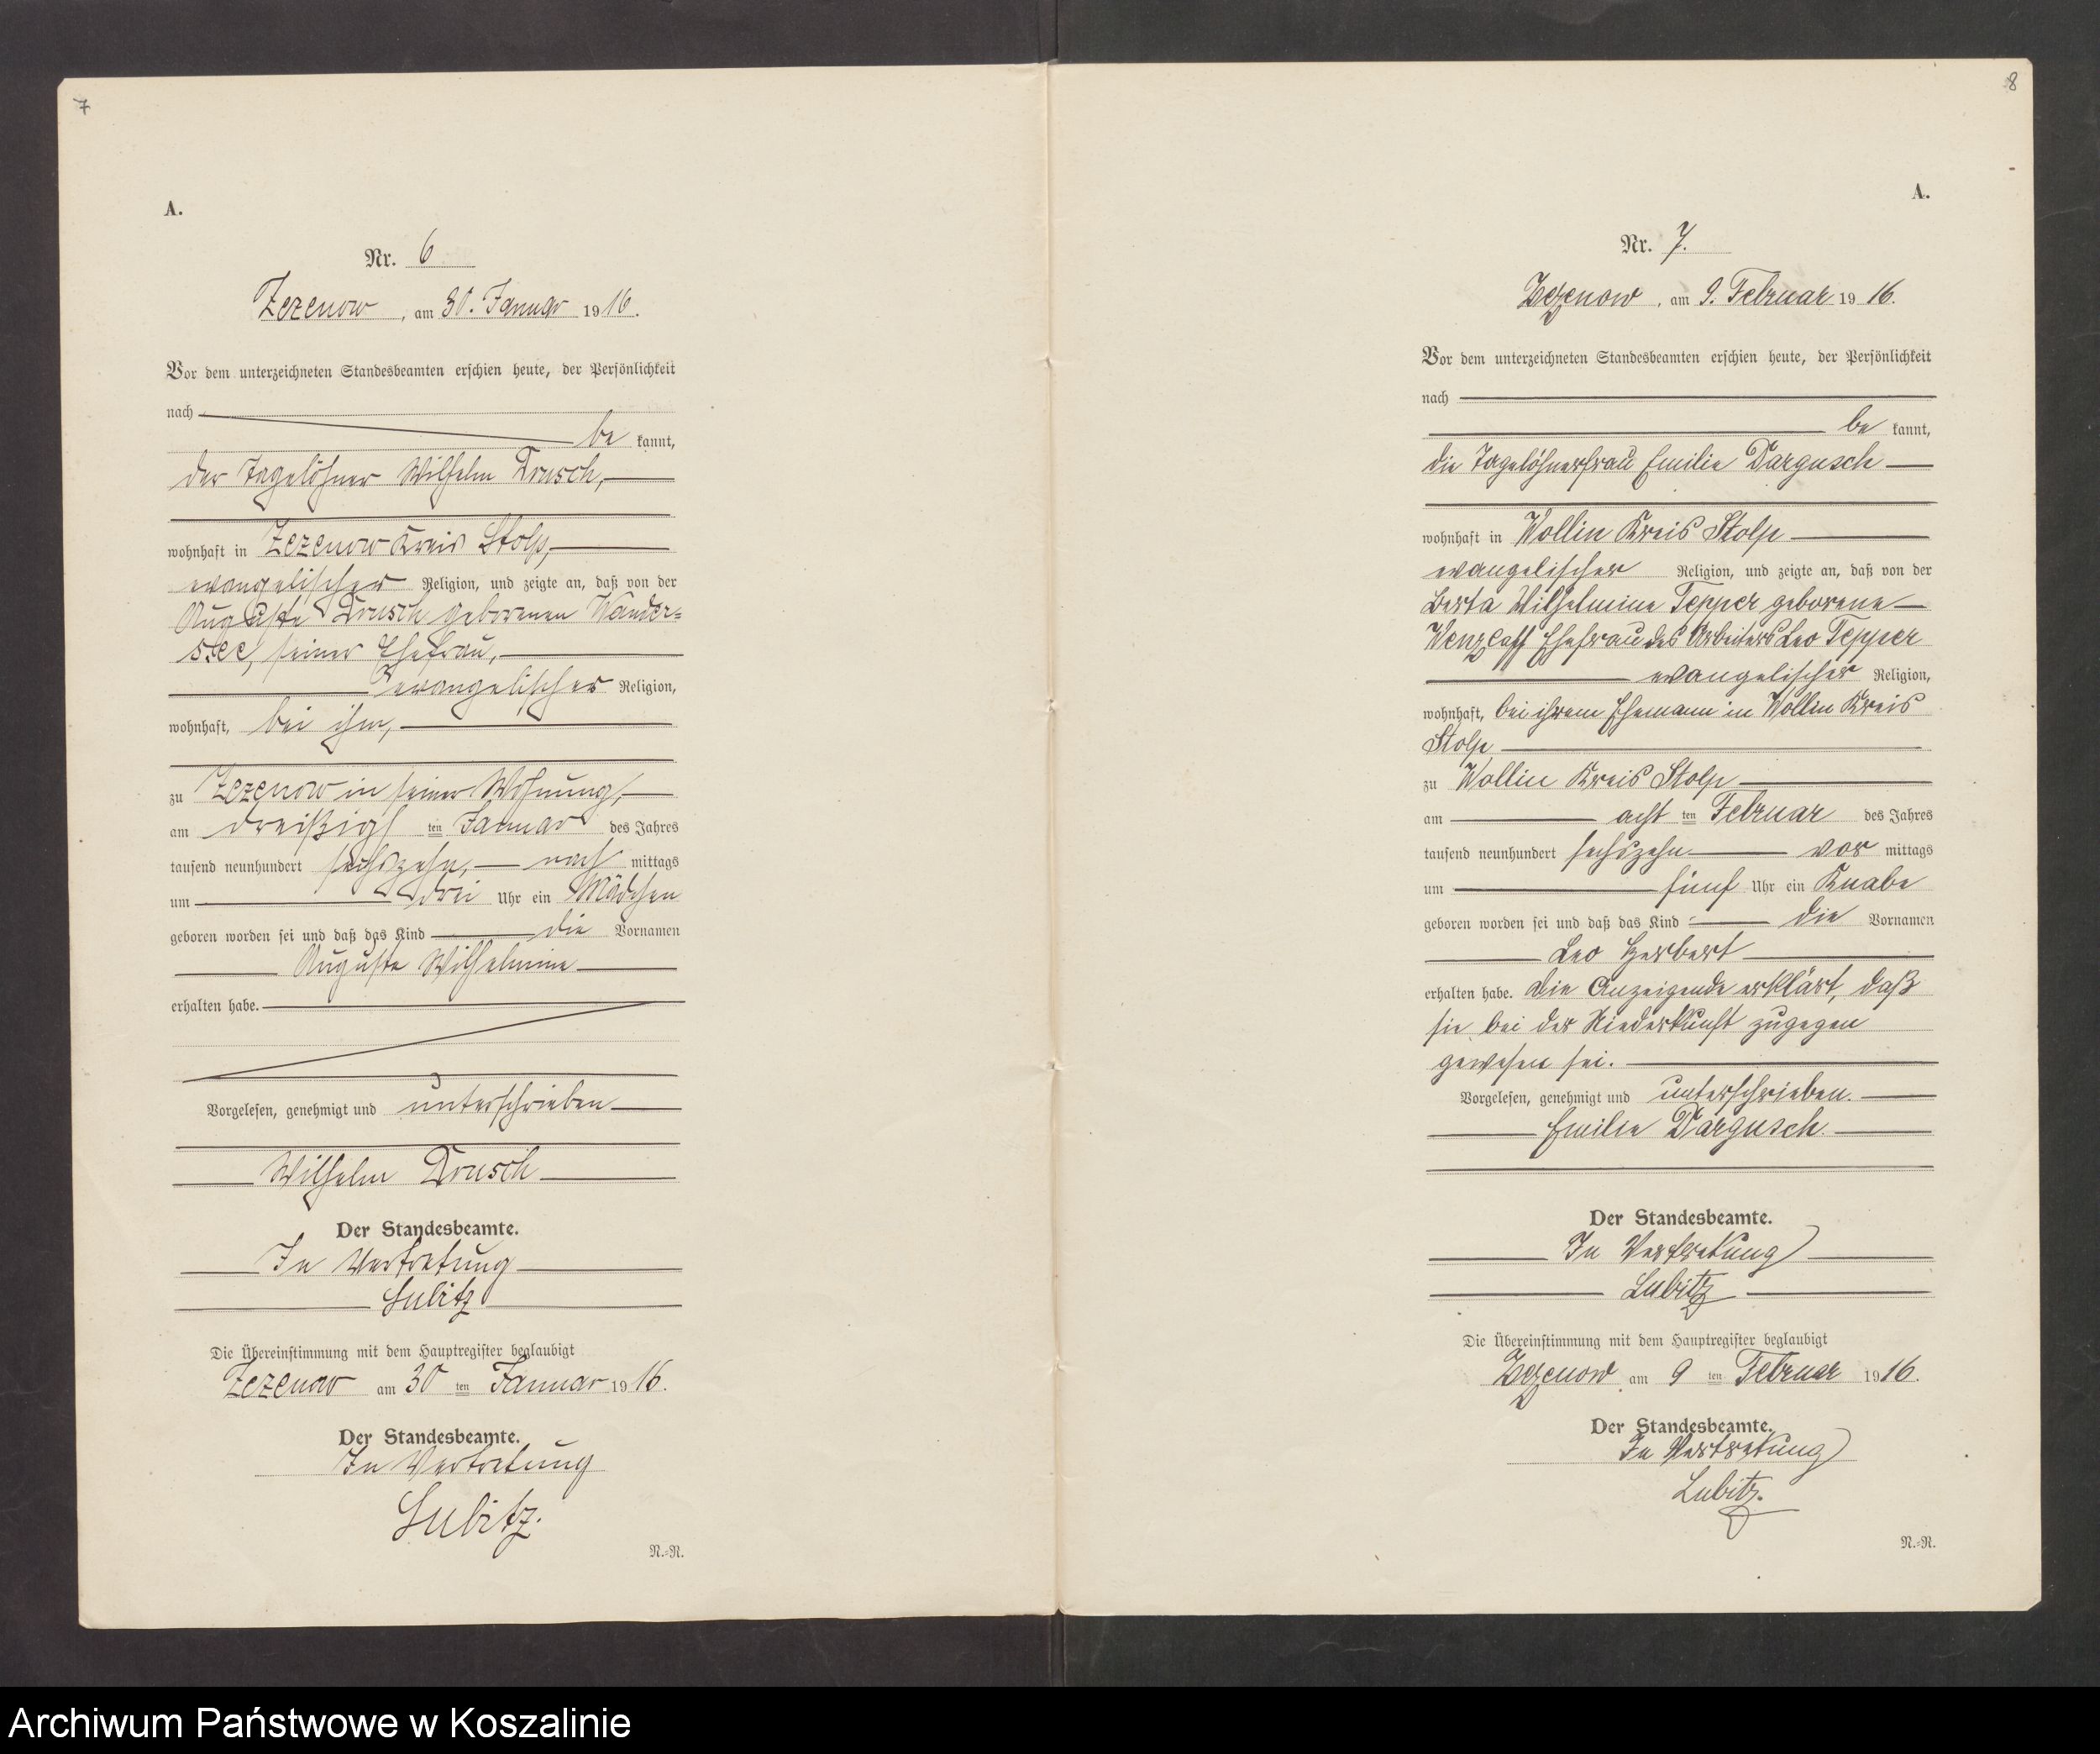 7
A.
Nr. 6
Zezenow, am 30. Januar 1916.
Vor dem unterzeichneten Standesbeamten erschien heute, der Persönlichkeit
nach
be kannt,
der Tagelöhner Wilhelm Drusch,
wohnhaft in Zezenow Kreis Stolp,
evangelischer Religion, und zeigte an, daß von der
Auguste Drusch geborenen Wander=
see, seiner Ehefrau,
evangelischer Religion,
wohnhaft, bei ihm,
zu Zezenow in seiner Wohnung,
am dreißigs ten Januar des Jahres
tausend neunhundert sechszehn, nach mittags
um drei Uhr ein Mädchen
geboren worden sei und daß das Kind die Vornamen
Auguste Wilhelmine
erhalten habe.
Vorgelesen, genehmigt und unterschrieben
Wilhelm Drusch
Der Standesbeamte.
In Vertretung
Lubitz
Die Übereinstimmung mit dem Hauptregister beglaubigt
Zezenow am 30 ten Januar 1916.
Der Standesbeamte.
In Vertretung
Lubitz.
N.=N.
8
A.
Nr. 7.
Zezenow, am 9. Februar 1916.
Vor dem unterzeichneten Standesbeamten erschien heute, der Persönlichkeit
nach
be kannt,
die Tagelöhnerfrau Emilie Dargusch
wohnhaft in Wollin Kreis Stolp
evangelischer Religion, und zeigte an, daß von der
Berta Wilhelmine Tepper geborene
Wenzlaff Ehefrau des Arbeiters Leo Tepper
evangelischer Religion,
wohnhaft, bei ihrem Ehemann in Wollin Kreis
Stolp
zu Wollin Kreis Stolp
am acht ten Februar des Jahres
tausend neunhundert sechszehn vor mittags
um fünf Uhr ein Knabe
geboren worden sei und daß das Kind die Vornamen
Leo Herbert
erhalten habe. Die Anzeigende erklärt, daß
sie bei der Niederkunft zugegen
gewesen sei.
Vorgelesen, genehmigt und unterschrieben.
Emilie Dargusch.
Der Standesbeamte.
In Vertretung
Lubitz
Die Übereinstimmung mit dem Hauptregister beglaubigt
Zezenow am 9 ten Februar 1916.
Der Standesbeamte.
In Vertretung
Lubitz.
N.=N.
Archiwum Państwowe w Koszalinie